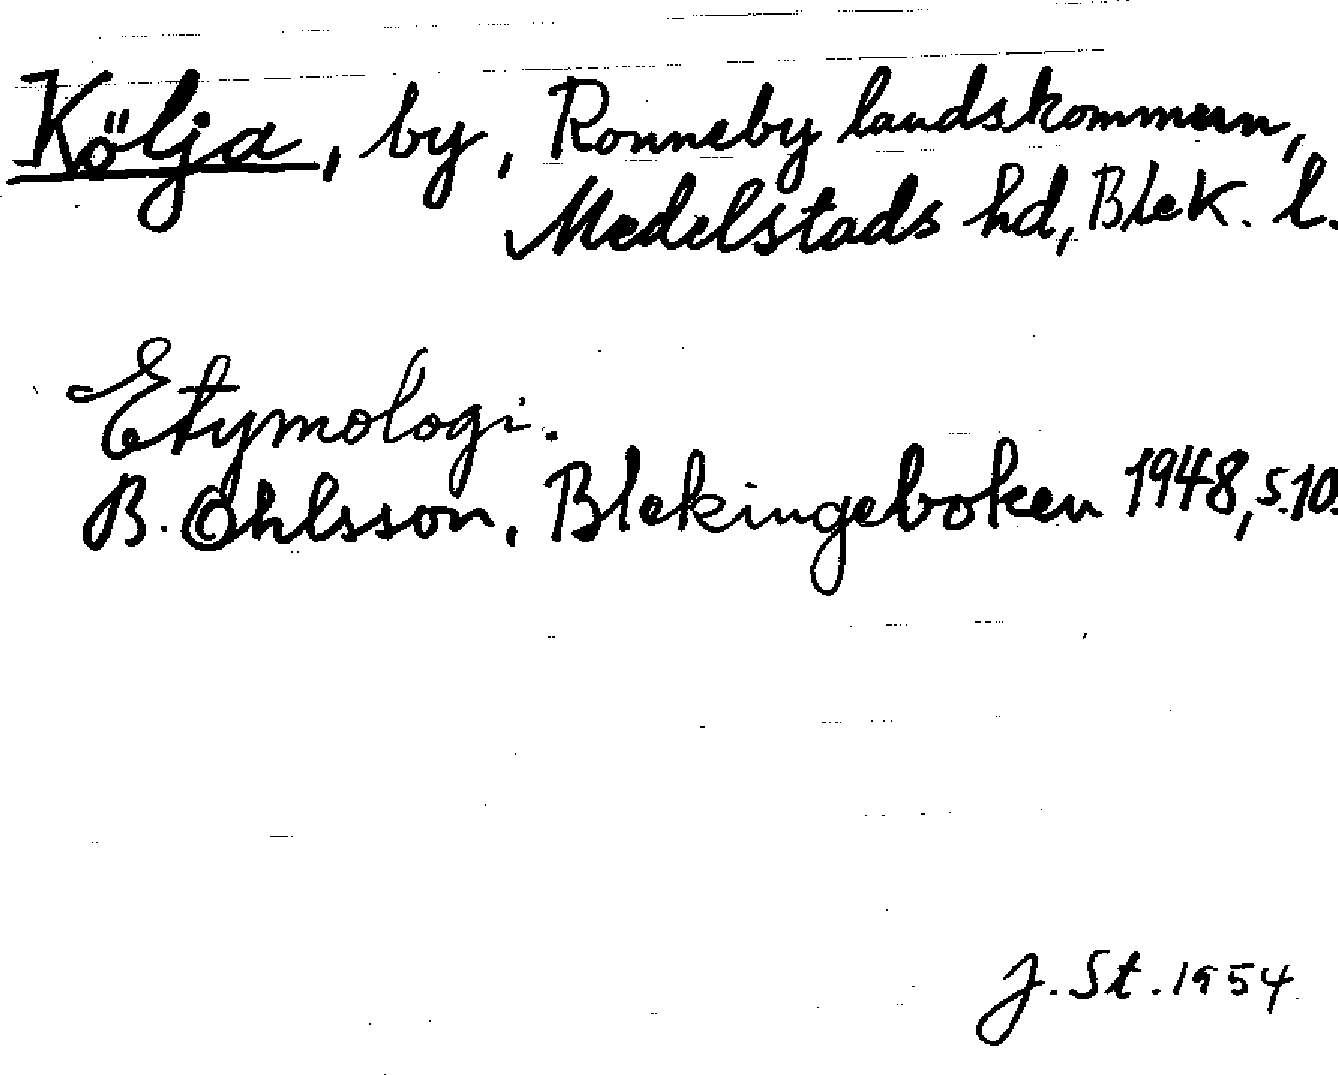 Kölja, by, Ronneby landskommun,
Medelstads hd, Blek. l.
Etymologi.
B. Ohlsson, Blekingeboken 1948, s. 10.
J. St. 1954